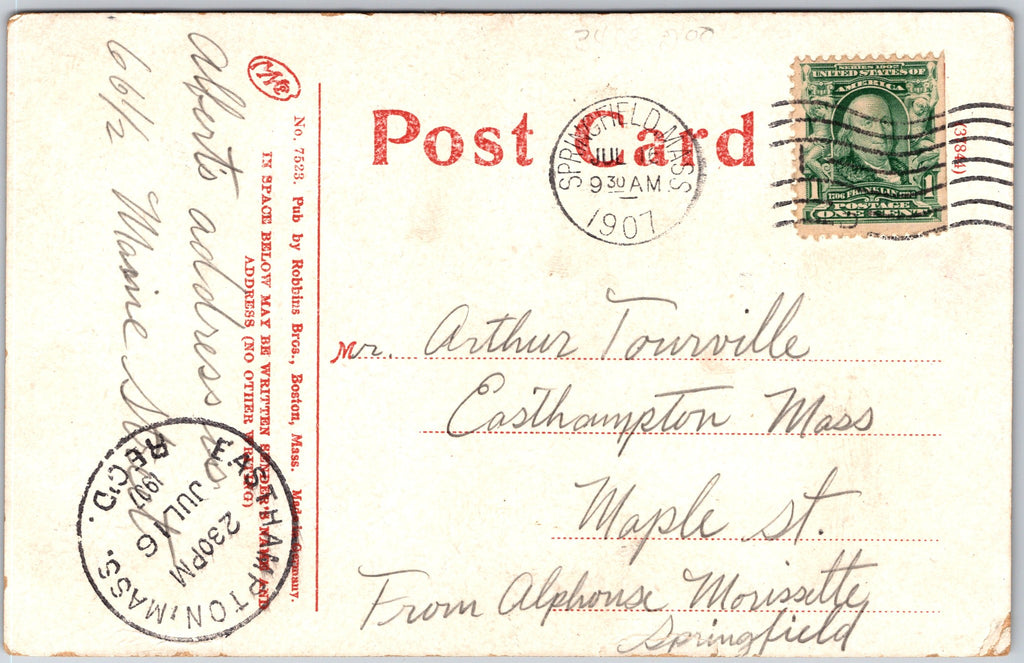 Post Card
SPRINGFIELD, MASS
JUL 16
9 30 AM
1907
SERIES 1902
UNITED STATES OF
AMERICA
1 1
FRANKLIN
POSTAGE
ONE CENT
(3184)
Mr. Arthur Tourville
Easthampton Mass
Maple St.
From Alphonse Morissette
Springfield
No. 7523. Pub by Robbins Bros., Boston, Mass. Made in Germany.
IN SPACE BELOW MAY BE WRITTEN SENDER'S NAME AND
ADDRESS (NO OTHER WRITING)
Albert's address is
66½ Maine Street
EASTHAMPTON, MASS.
JUL 16
230PM
REC'D.